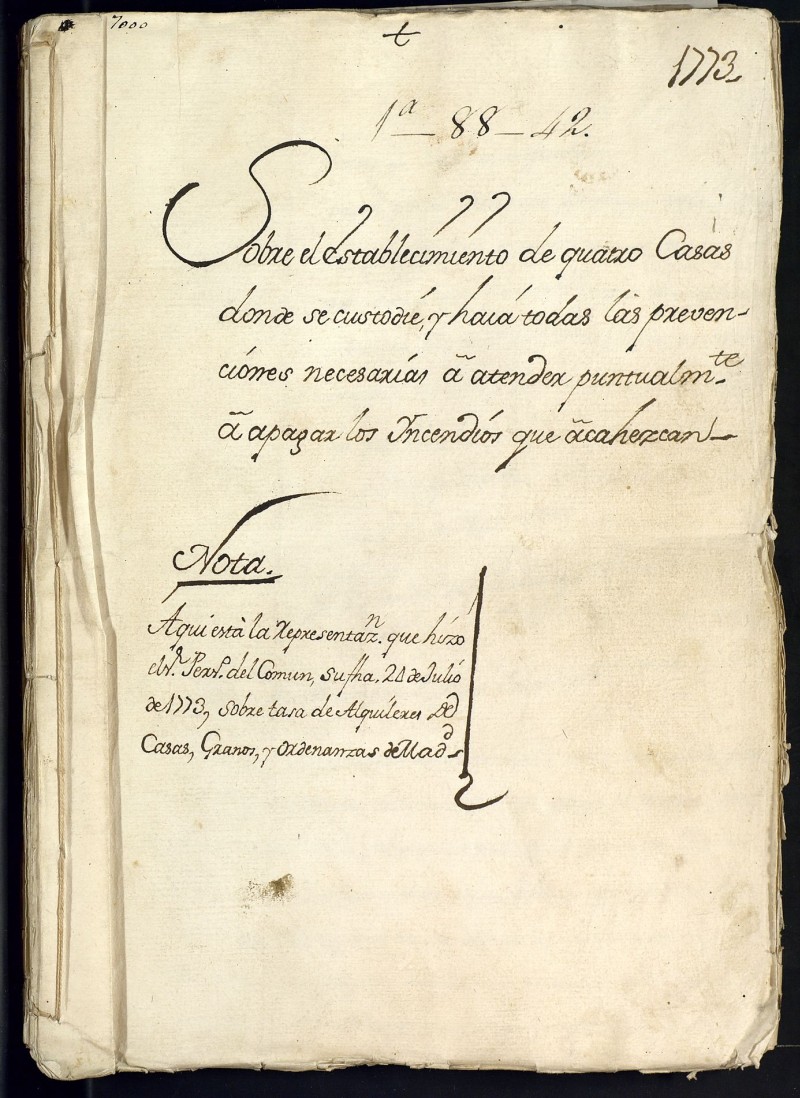 7000
1773
1ª — 88 — 42.
Sobre el Establecimiento de quatro Casas
donde se custodie, y haia todas las preven-
ciones necesarias â atender puntualm.te
â apagar los Yncendios que âcahezcan
Nota.
Aqui està la Representaz.n que hizo
el s.r Pers.o del Comun, su fha. 24 de Julio
de 1773, sobre tasa de Alquileres de
Casas, Granos, y Ordenanzas de Mad.d